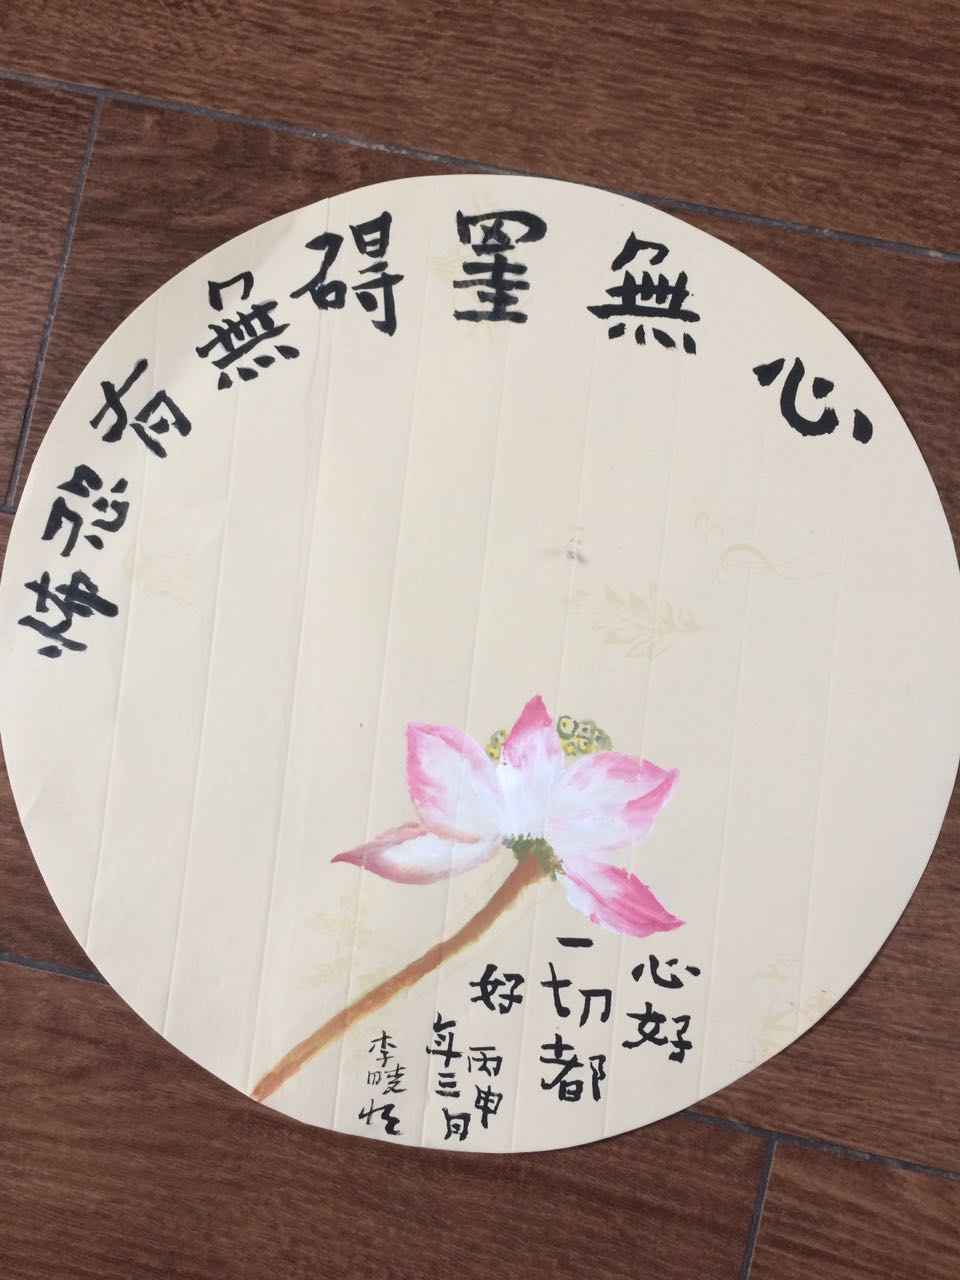 心無罣碍無有恐怖
心好
一切都
好
丙申
年三月
李晓恒